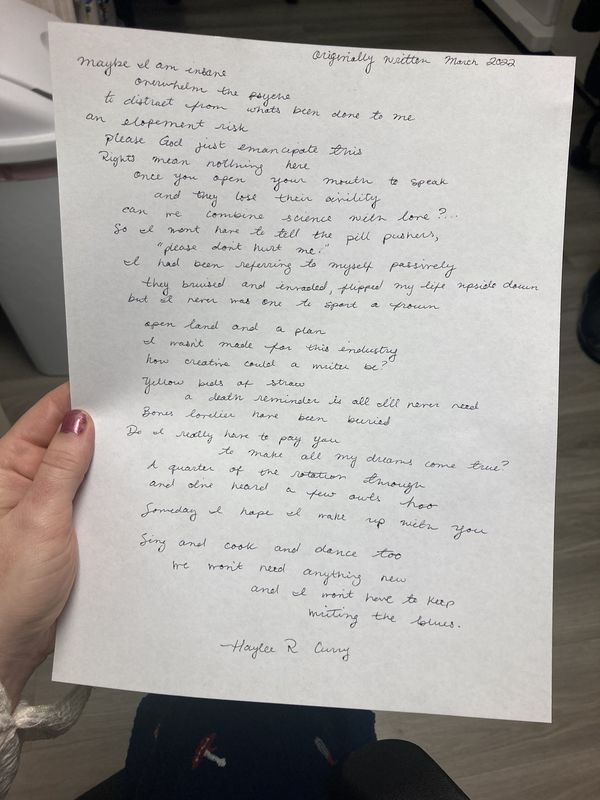 Originally written March 2022
Maybe I am insane
overwhelm the psyche
to distract from whats been done to me
an elopement risk
please God just emancipate this
Rights mean nothning here
Once you open your mouth to speak
and they lose their civility
can we combine science with love?...
So I wont have to tell the pill pushers,
"please dont hurt me."
I had been referring to myself passively
they bruised and invaded, flipped my life upside down
but I never was one to sport a frown
open land and a plan
I wasn't made for this industry
how creative could a writer be?
Yellow beds of straw
a death reminder is all I'll never need
Bones lovelier have been buried
Do I really have to pay you
to make all my dreams come true?
A quarter of the rotation through
and I've heard a few owls hoo
Someday I hope I wake up with you
Sing and cook and dance too
we won't need anything new
and I won't have to keep
writing the blues.
Haylee R Curry